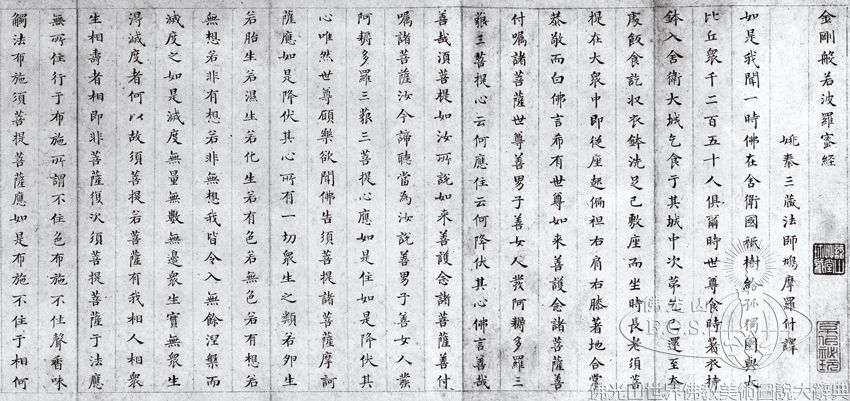 金剛般若波羅蜜經
姚秦三藏法師鳩摩羅什譯
如是我聞一時佛在舍衛國祇樹給孤獨園與大
比丘衆千二百五十人俱爾時世尊食時著衣持
鉢入舍衛大城乞食于其城中次第乞已還至本
處飯食訖收衣鉢洗足已敷座而坐時長老須菩
提在大衆中即從座起偏袒右肩右膝著地合掌
恭敬而白佛言希有世尊如來善護念諸菩薩善
付囑諸菩薩世尊善男子善女人發阿耨多羅三
藐三菩提心云何應住云何降伏其心佛言善哉
善哉須菩提如汝所說如來善護念諸菩薩善付
囑諸菩薩汝今諦聽當為汝說善男子善女人發
阿耨多羅三藐三菩提心應如是住如是降伏其
心唯然世尊願樂欲聞佛告須菩提諸菩薩摩訶
薩應如是降伏其心所有一切衆生之類若卵生
若胎生若濕生若化生若有色若無色若有想若
無想若非有想若非無想我皆令入無餘涅槃而
滅度之如是滅度無量無數無邊衆生實無衆生
得滅度者何以故須菩提若菩薩有我相人相衆
生相壽者相即非菩薩復次須菩提菩薩于法應
無所住行于布施所謂不住色布施不住聲香味
觸法布施須菩提菩薩應如是布施不住于相何
佛光山
F.G.S.
佛光山世界佛教美術圖說大辭典